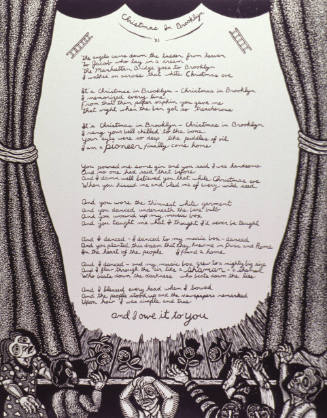 Christmas In Brooklyn
The angels came down the beacon from heaven
to Jesus who lay in a cream
The Manhattan Bridge goes to Brooklyn
I walked in across that white Christmas eve
It's Christmas in Brooklyn - Christmas in Brooklyn
I memorized every line
From that thin paper you gave me
That night when the bar got
It's Christmas in Brooklyn - Christmas in Brooklyn
I rang your bell chilled to the bone
Your eyes were so deep like puddles of oil
I am a pioneer finally come home
You poured me some gin and you said I was handsome
And no one had said that before
And I damn well believed you that white Christmas Eve
When you kissed me and
And you wore the thinnest white garment
And you danced underneath the
And you wound up my music box
And you taught me what I thought I'd never be taught
And I danced - I danced to my music box - danced
And you planted this dream that they dream in Paris and Rome
In the heart of the people I found a home
And I danced - and my music box grew to a mighty big size
And I flew through the air like a shaman - a shaman
Who beats down the darkness who beats down the lies
And I blessed every head when I bowed
And the people stood up and the newspapers remarked
Upon how I was simple and true
and I owe it to you